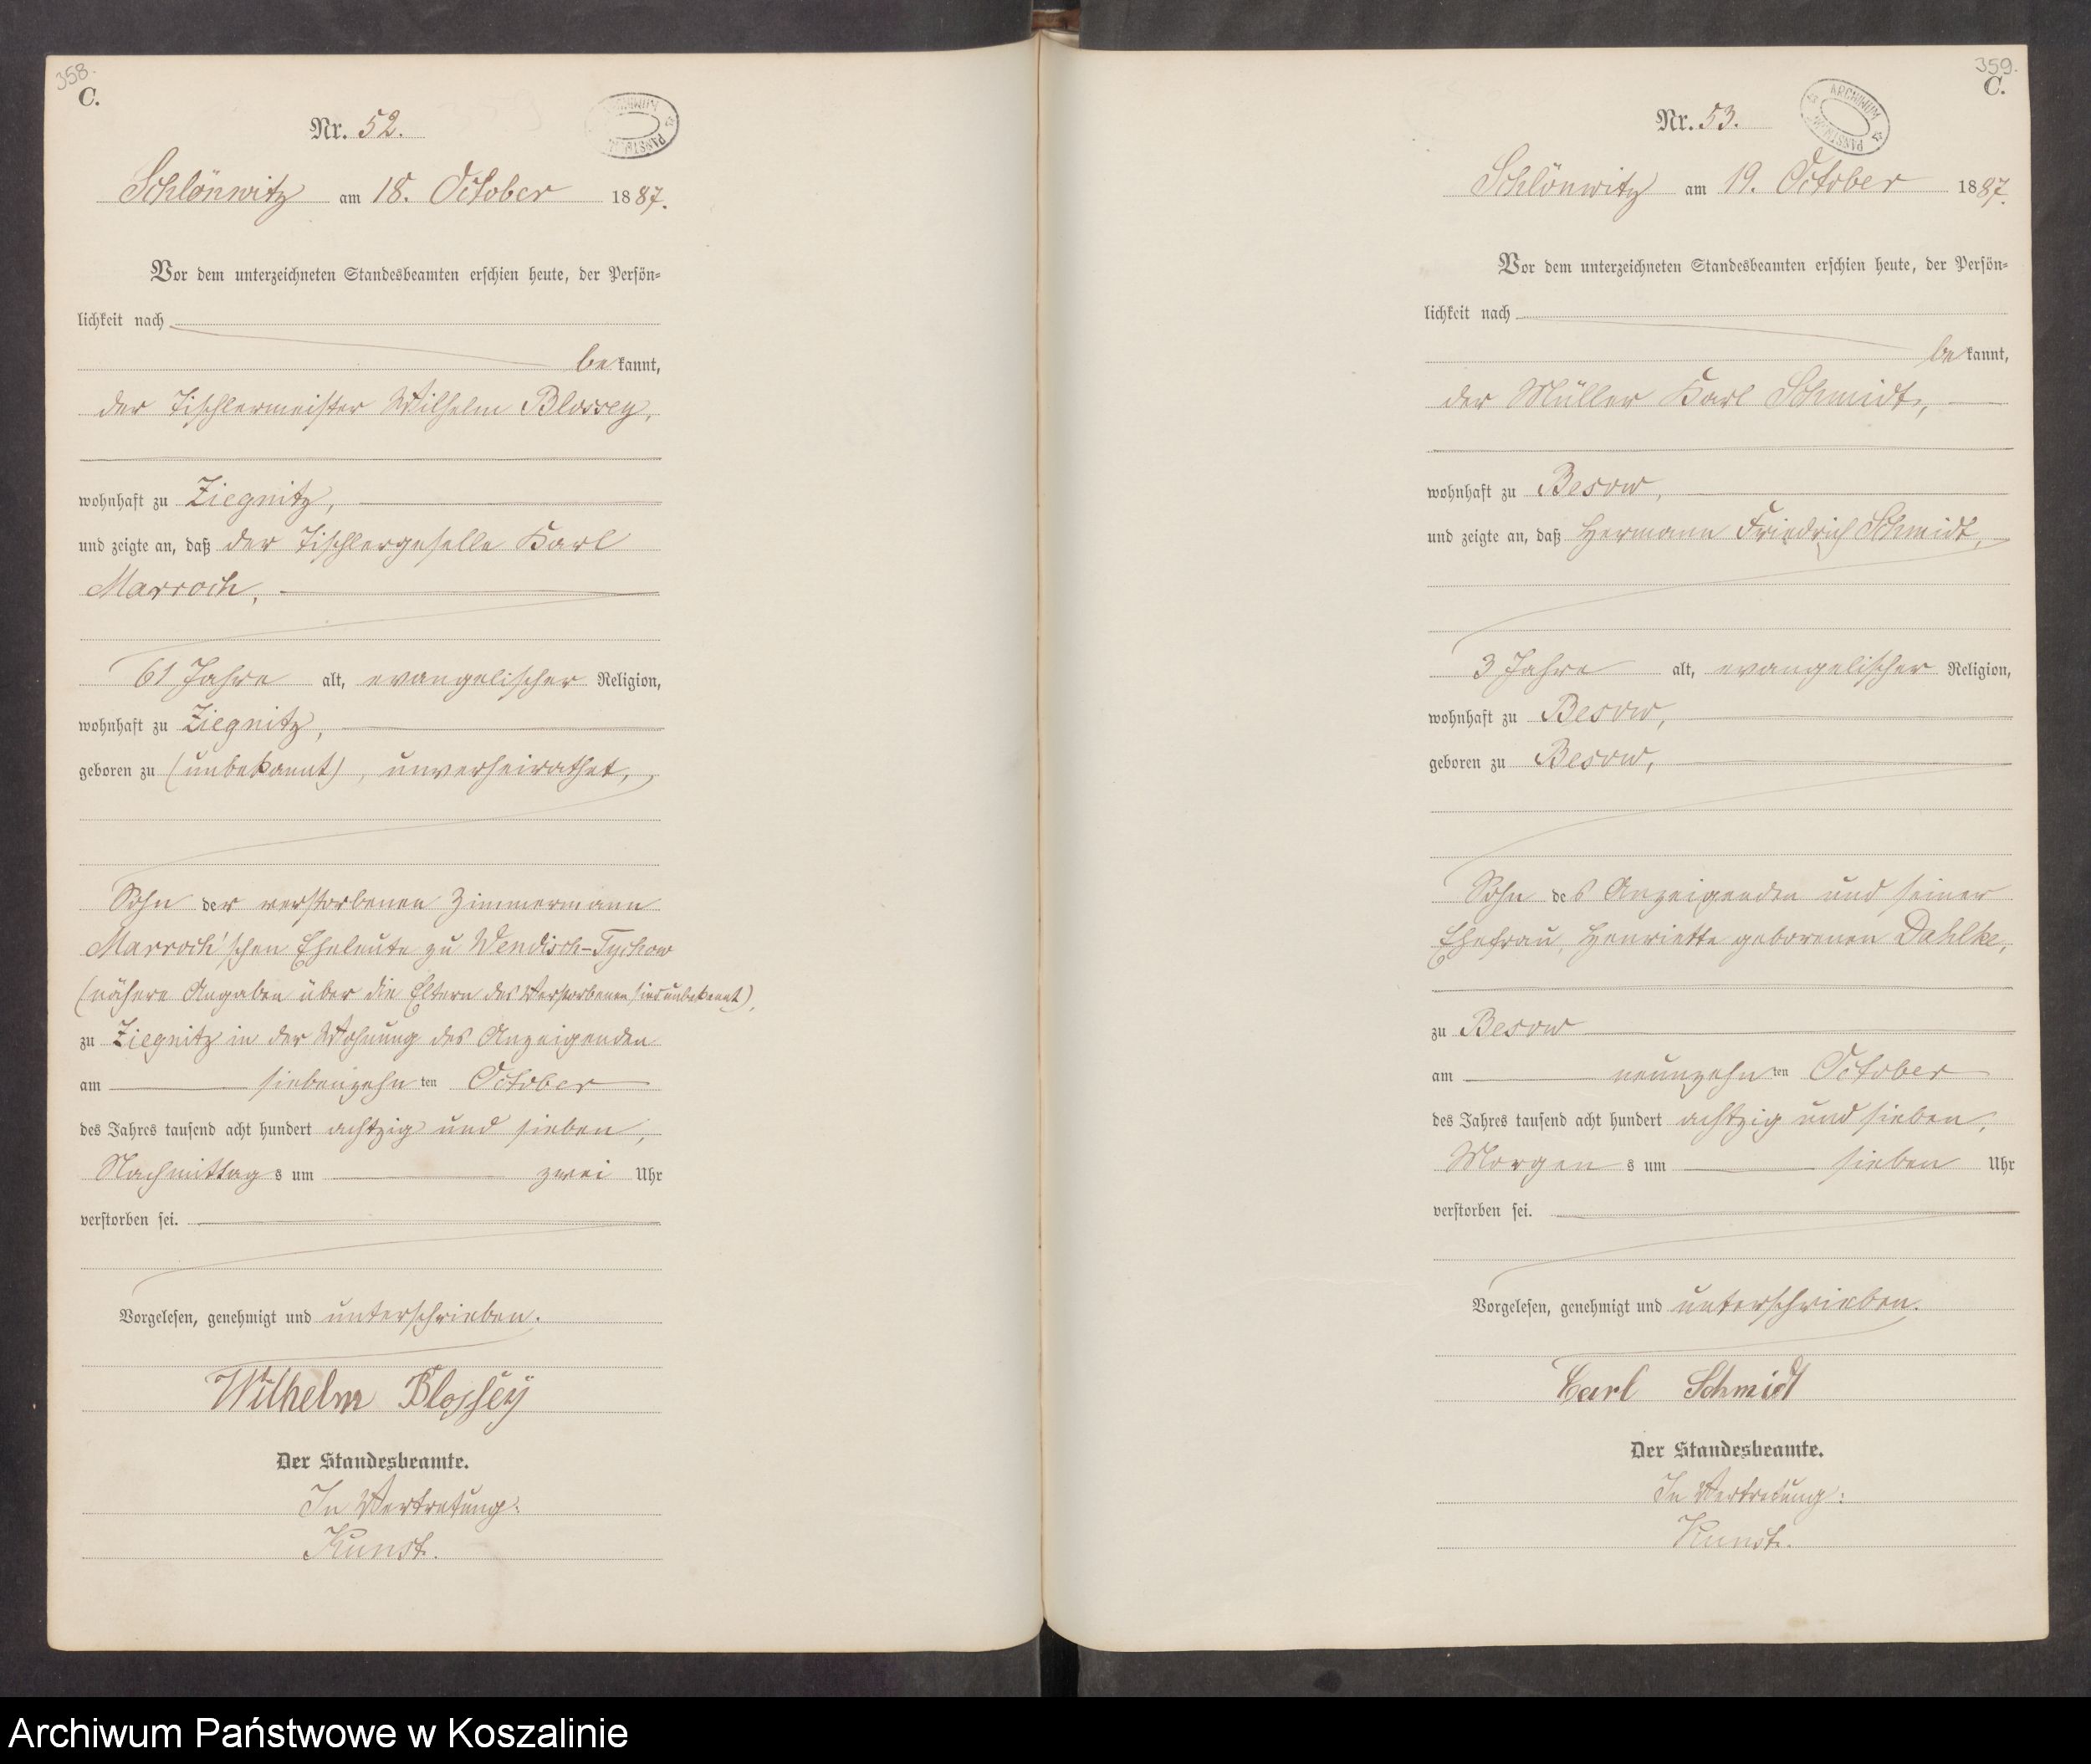 358.
C.
ARCHIWUM PAŃSTWOW
Nr. 52.
Schlönwitz am 18. October 1887.
Vor dem unterzeichneten Standesbeamten erschien heute, der Persön-
lichkeit nach
bekannt,
der Tischlermeister Wilhelm Blossey,
wohnhaft zu Ziegnitz,
und zeigte an, daß der Tischlergeselle Karl
Marroch,
61 Jahre alt, evangelischer Religion,
wohnhaft zu Ziegnitz,
geboren zu (unbekannt), unverheirathet,
Sohn der verstorbenen Zimmermann
Marroch'schen Eheleute zu Wendisch-Tychow
(nähere Angaben über die Eltern des Verstorbenen sind unbekannt),
zu Ziegnitz in der Wohnung des Anzeigenden
am siebenzehnten October
des Jahres tausend acht hundert achtzig und sieben,
Nachmittags um zwei Uhr
verstorben sei.
Vorgelesen, genehmigt und unterschrieben.
Wilhelm Blossey
Der Standesbeamte.
In Vertretung:
Kunst.
359.
C.
ARCHIWUM PAŃSTWOW
Nr. 53.
Schlönwitz am 19. October 1887.
Vor dem unterzeichneten Standesbeamten erschien heute, der Persön-
lichkeit nach
bekannt,
der Müller Karl Schmidt,
wohnhaft zu Besow,
und zeigte an, daß Hermann Friedrich Schmidt,
3 Jahre alt, evangelischer Religion,
wohnhaft zu Besow,
geboren zu Besow,
Sohn des Anzeigenden und seiner
Ehefrau, Henriette geborenen Dahlke,
zu Besow
am neunzehnten October
des Jahres tausend acht hundert achtzig und sieben,
Morgens um sieben Uhr
verstorben sei.
Vorgelesen, genehmigt und unterschrieben.
Carl Schmidt
Der Standesbeamte.
In Vertretung:
Kunst.
Archiwum Państwowe w Koszalinie